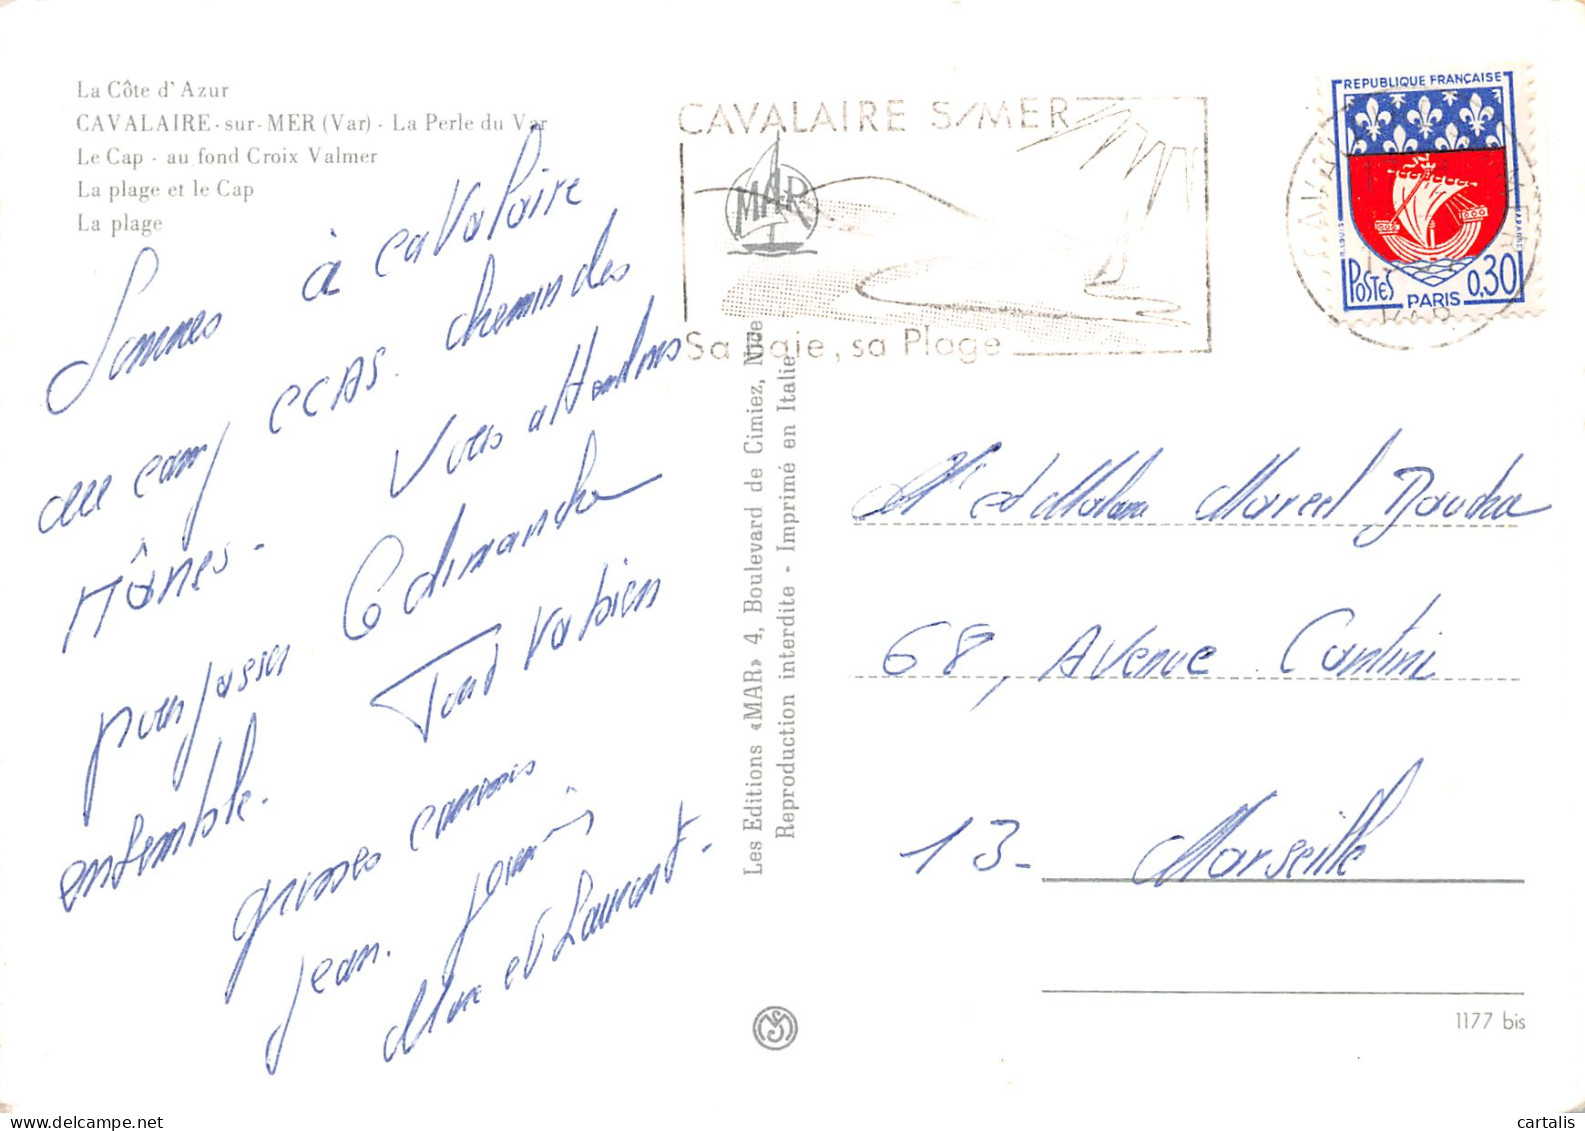 La Côte d'Azur
CAVALAIRE-sur-MER (Var) - La Perle du Var
Le Cap - au fond Croix Valmer
La plage et le Cap
La plage
Sommes à caValaire
au camp CCAS. chemin des
Mânes. Vous attendons
pour passer le dimanche
ensemble. Tout va bien
grosses
Jean.
et Laurent.
CAVALAIRE S/MER
MAR
Sa Baie, sa Plage
REPUBLIQUE FRANÇAISE
POSTES
PARIS
0,30
VAR
Les Editions «MAR» 4, Boulevard de Cimiez, Nice
Reproduction interdite - Imprimé en Italie
Mr et Madame Marcel
68, AVenue Cantini
13 - Marseille
1177 bis
cartalis